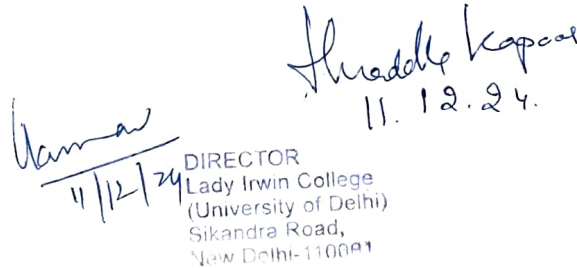 Kapoor
11.12.24.
11/12/24
DIRECTOR
Lady Irwin College
(University of Delhi)
Sikandra Road,
New Delhi-110001